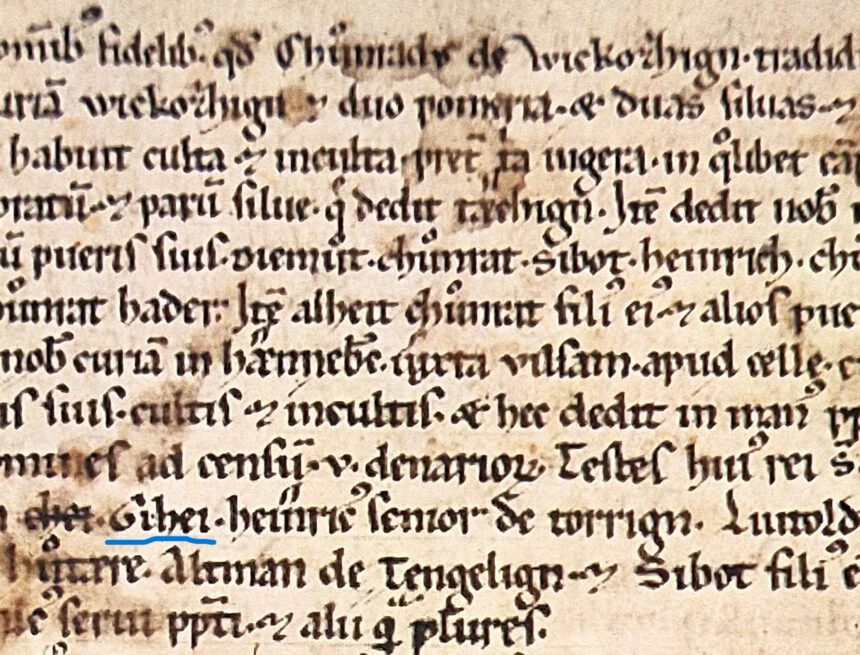 omib᷒ fidelib᷒ qd Chunrad᷒ de wickorhign· tradid
uriā wickorhign ⁊ duo pomeria· & duas siluas ⁊
habuit culta ⁊ inculta· iugera· in qͦlibet
pratū· ⁊ paruū silue· qͥ dedit Itē dedit nob
ū pueris suis· diemūt· chunrat· Sibot· heinrich·
hunrat hader· Itē alheit chunrat fili᷒ ei᷒ ⁊ alios pue
nob curiā in iuxta vilsam· apud celle·
is suis· cultis ⁊ incultis· & hec dedit in man᷒ pp
omnes ad censū· v· denarioꝝ· Testes hui᷒ rei
heinric᷒ senior de torrign· Liutold
Altman de Tengelign· ⁊ Sibot fili᷒ e
serui ppti· ⁊ alii qͣ plures·